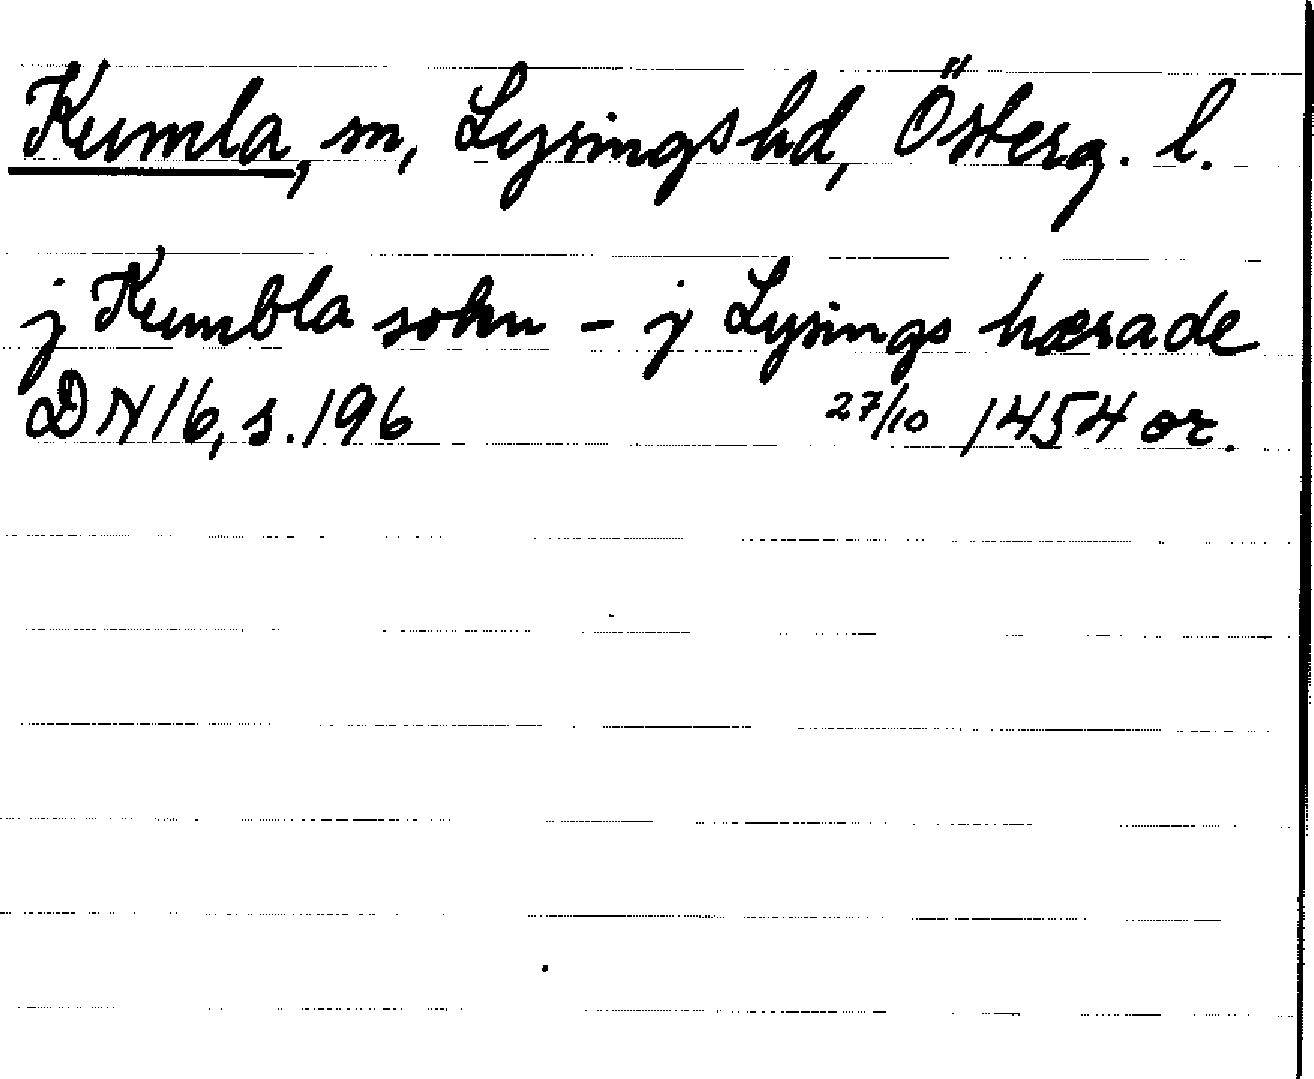 Kumla, sn, Lysings hd, Österg. l.
j Kumbla sokn - j Lysings hærade
DN 16, s. 196 27/10 1454 or.